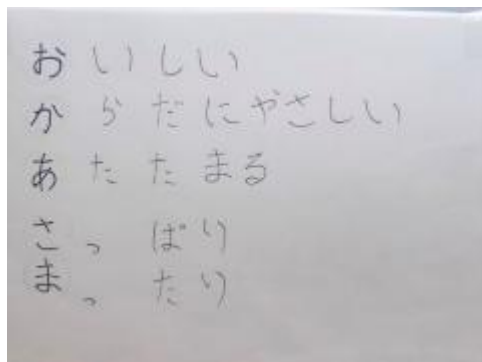 おいしい
からだにやさしい
あたたまる
さっぱり
まったり